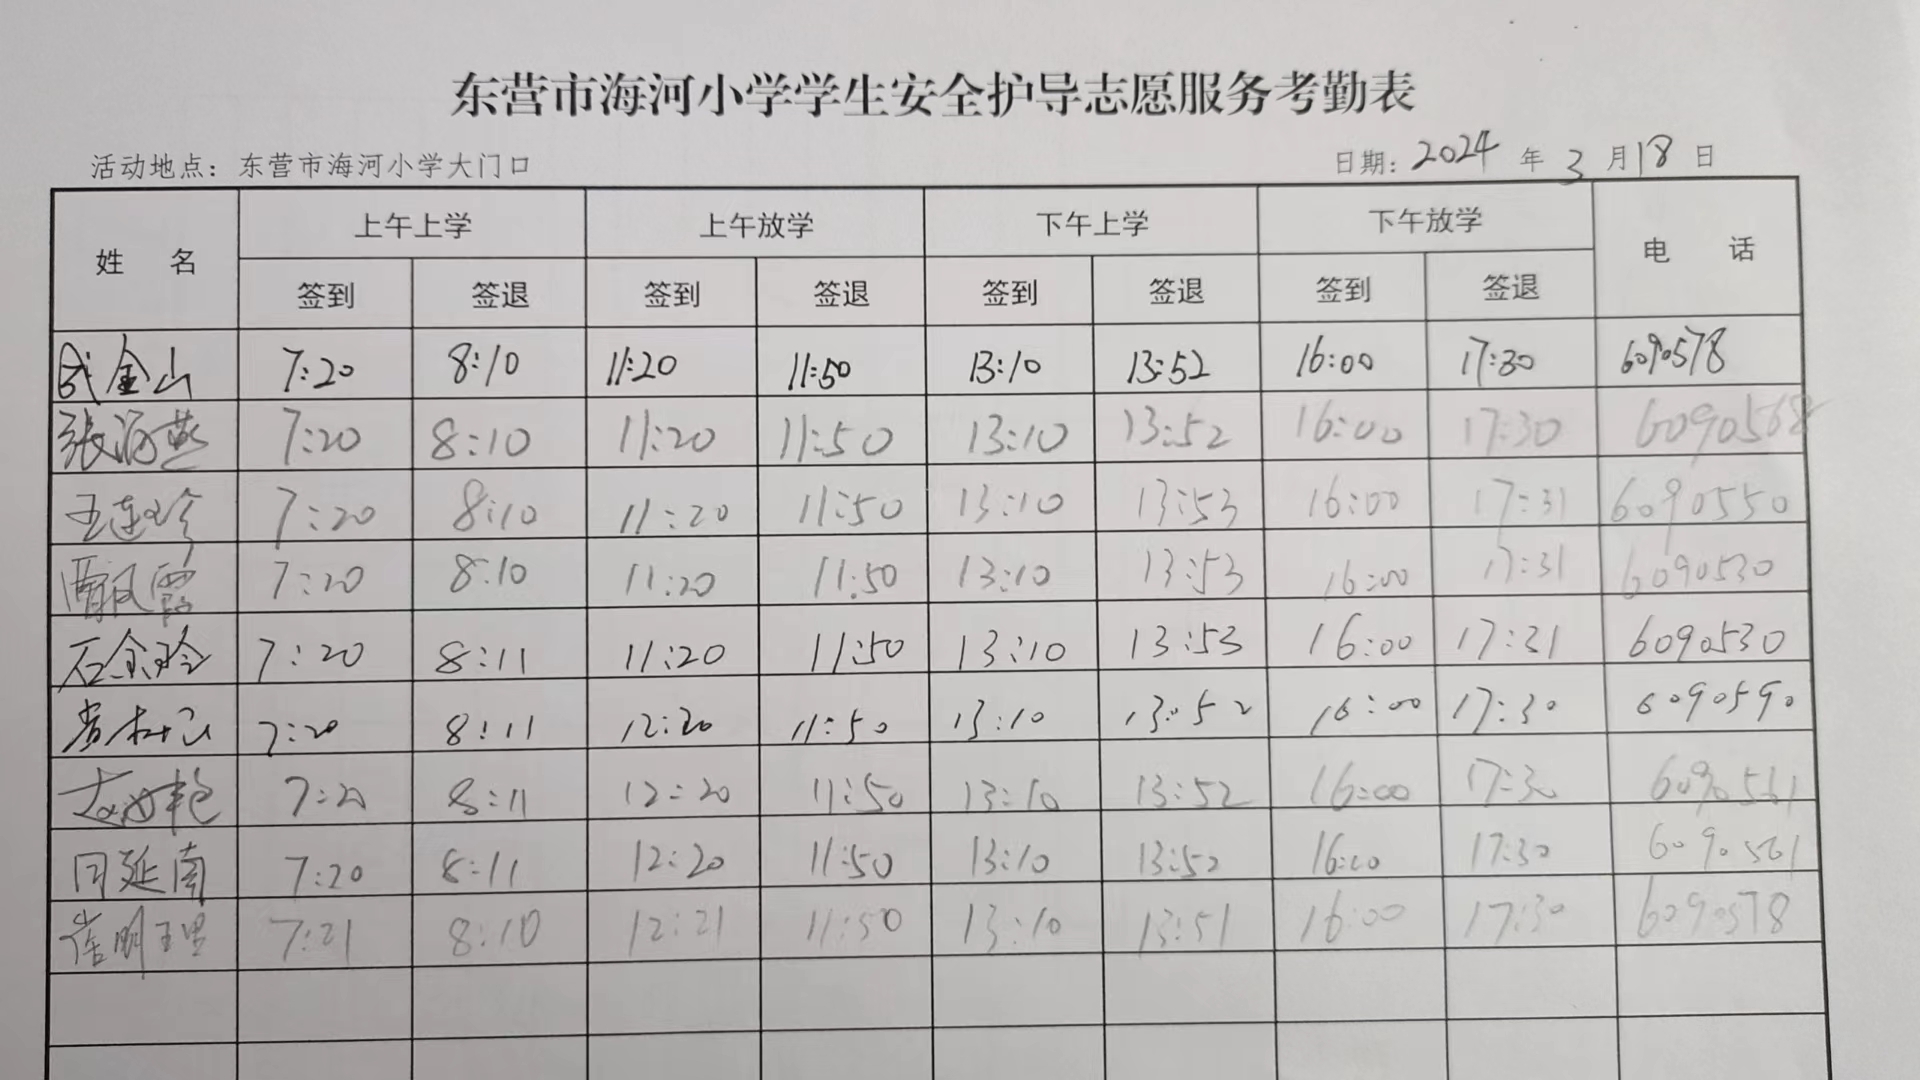 东营市海河小学学生安全护导志愿服务考勤表
活动地点：东营市海河小学大门口 日期：2024年3月18日
姓名 上午上学 上午放学 下午上学 下午放学 电话
签到 签退 签到 签退 签到 签退 签到 签退
武金山 7:20 8:10 11:20 11:50 13:10 13:52 16:00 17:30 6090578
张海燕 7:20 8:10 11:20 11:50 13:10 13:52 16:00 17:30 6090568
王连珍 7:20 8:10 11:20 11:50 13:10 13:53 16:00 17:31 6090550
7:20 8:10 11:20 11:50 13:10 13:53 16:00 17:31 6090530
石金玲 7:20 8:11 11:20 11:50 13:10 13:53 16:00 17:31 6090530
7:20 8:11 12:20 11:50 13:10 13:52 16:00 17:30 6090590
7:20 8:11 12:20 11:50 13:10 13:52 16:00 17:30 6090561
闫延南 7:20 8:11 12:20 11:50 13:10 13:52 16:00 17:30 6090561
崔明理 7:21 8:10 12:21 11:50 13:10 13:51 16:00 17:30 6090578